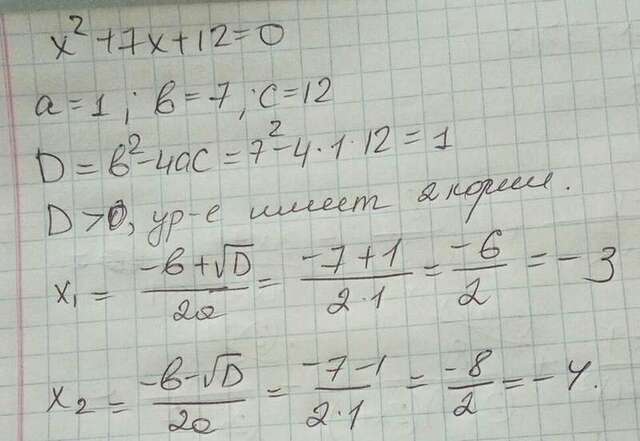 x² + 7x + 12 = 0
a = 1 ; в = 7 ; c = 12
D = в² - 4ac = 7² - 4 · 1 · 12 = 1
D > 0, ур-е имеет 2 корня.
x₁ = (-в + √D)/2a = (-7 + 1)/(2 · 1) = -6/2 = -3
x₂ = (-в - √D)/2a = (-7 - 1)/(2 · 1) = -8/2 = -4.